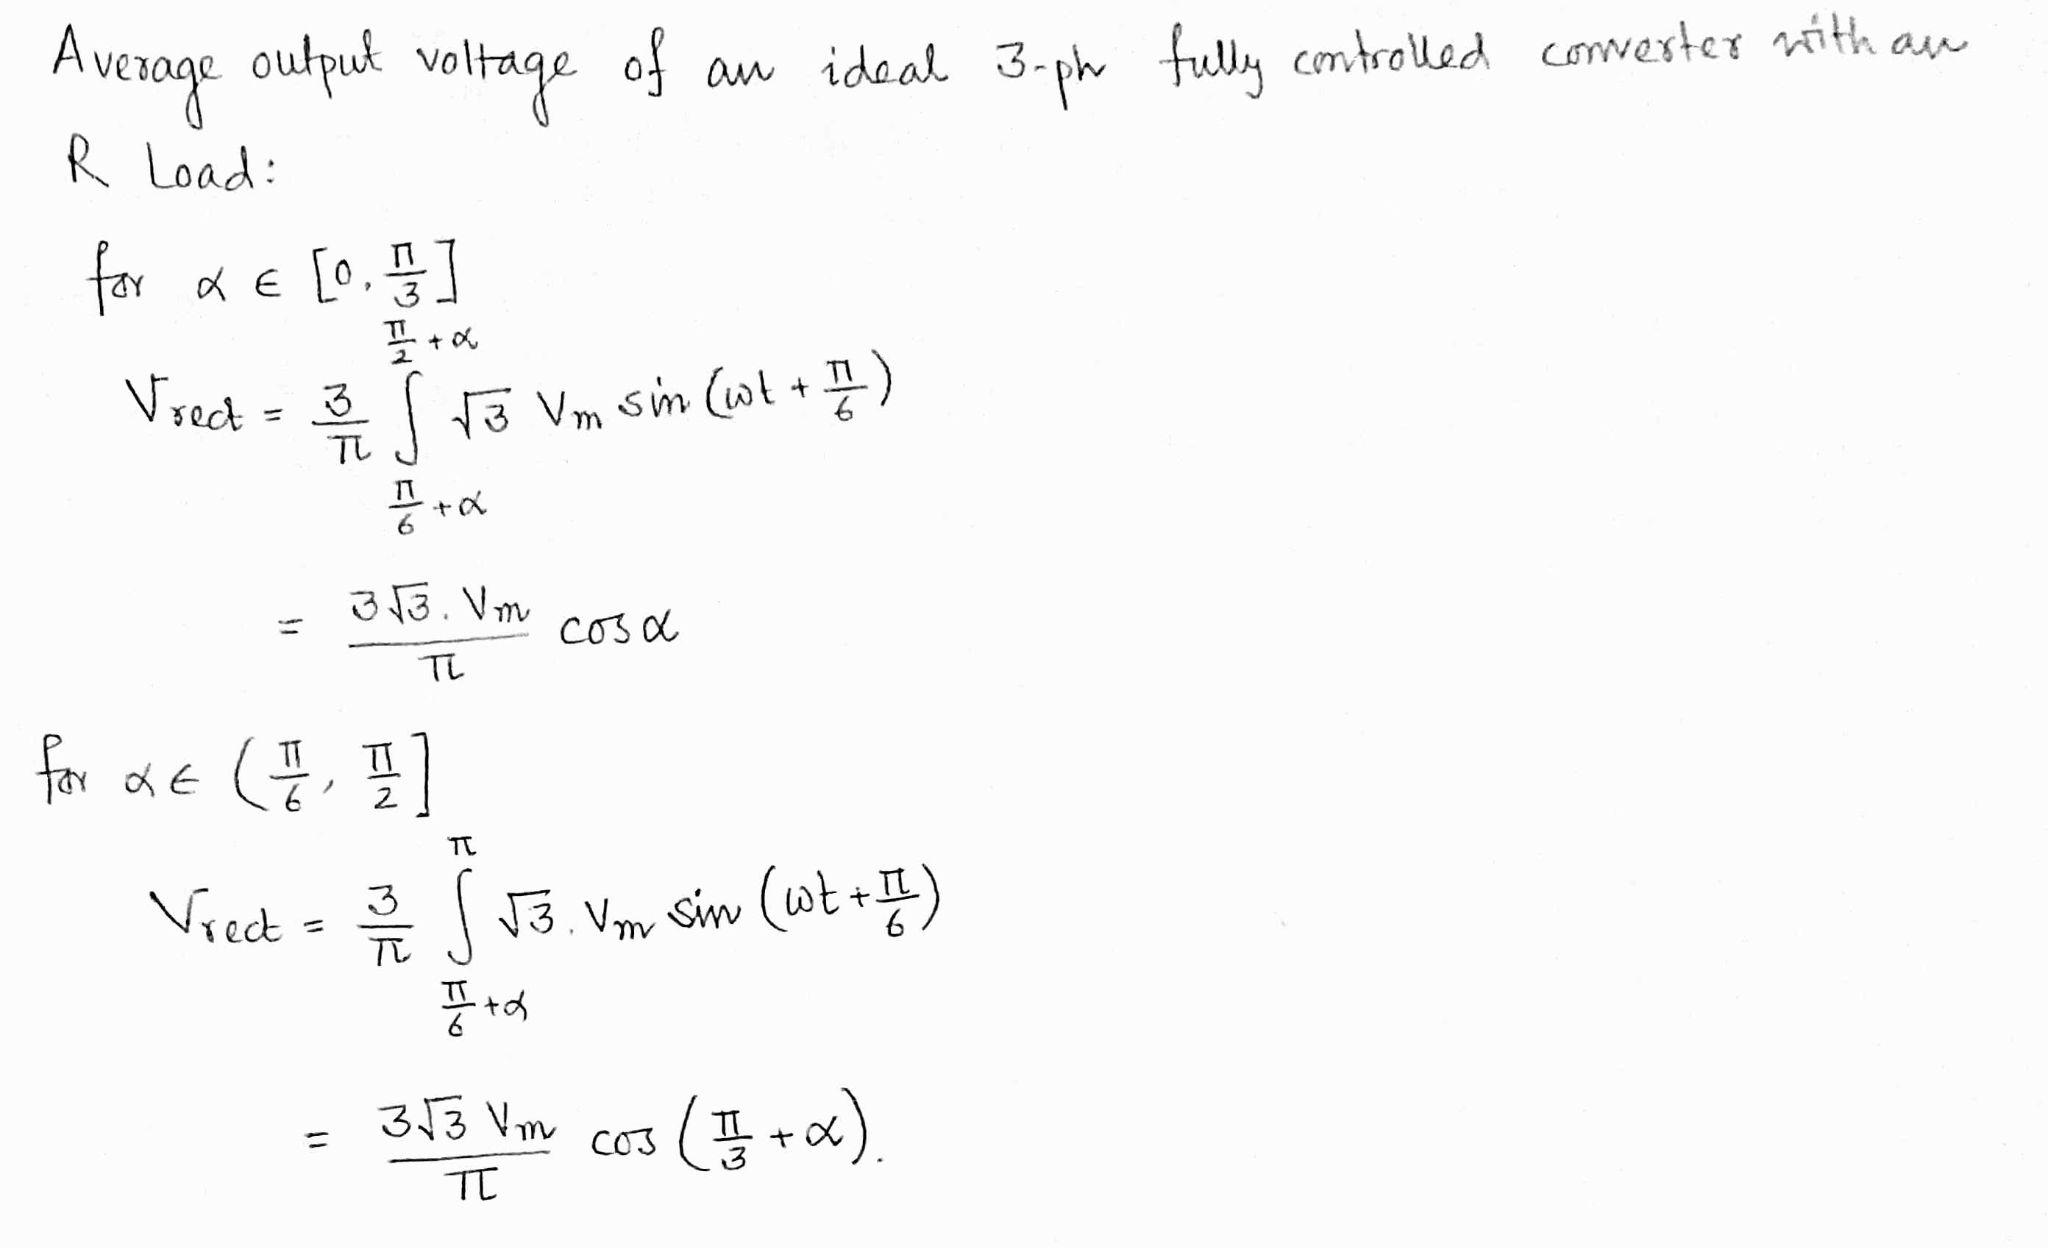 Average output voltage of an ideal 3-ph fully controlled converter with an
R Load:
for α ∈ [0, π/3]
Vrect = 3/π ∫_{π/6 + α}^{π/2 + α} √3 Vm sin (ωt + π/6)
= 3√3. Vm / π cos α
for α ∈ (π/6, π/2]
Vrect = 3/π ∫_{π/6 + α}^{π} √3. Vm sin (ωt + π/6)
= 3√3 Vm / π cos (π/3 + α).